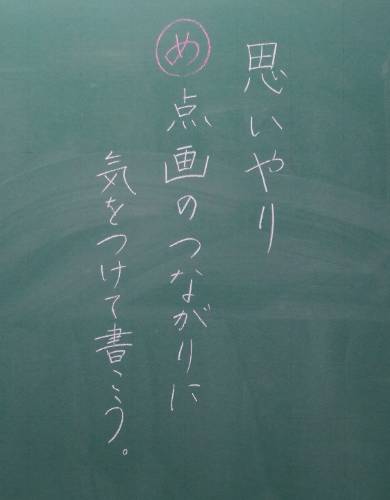 思いやり
め 点画のつながりに
気をつけて書こう。